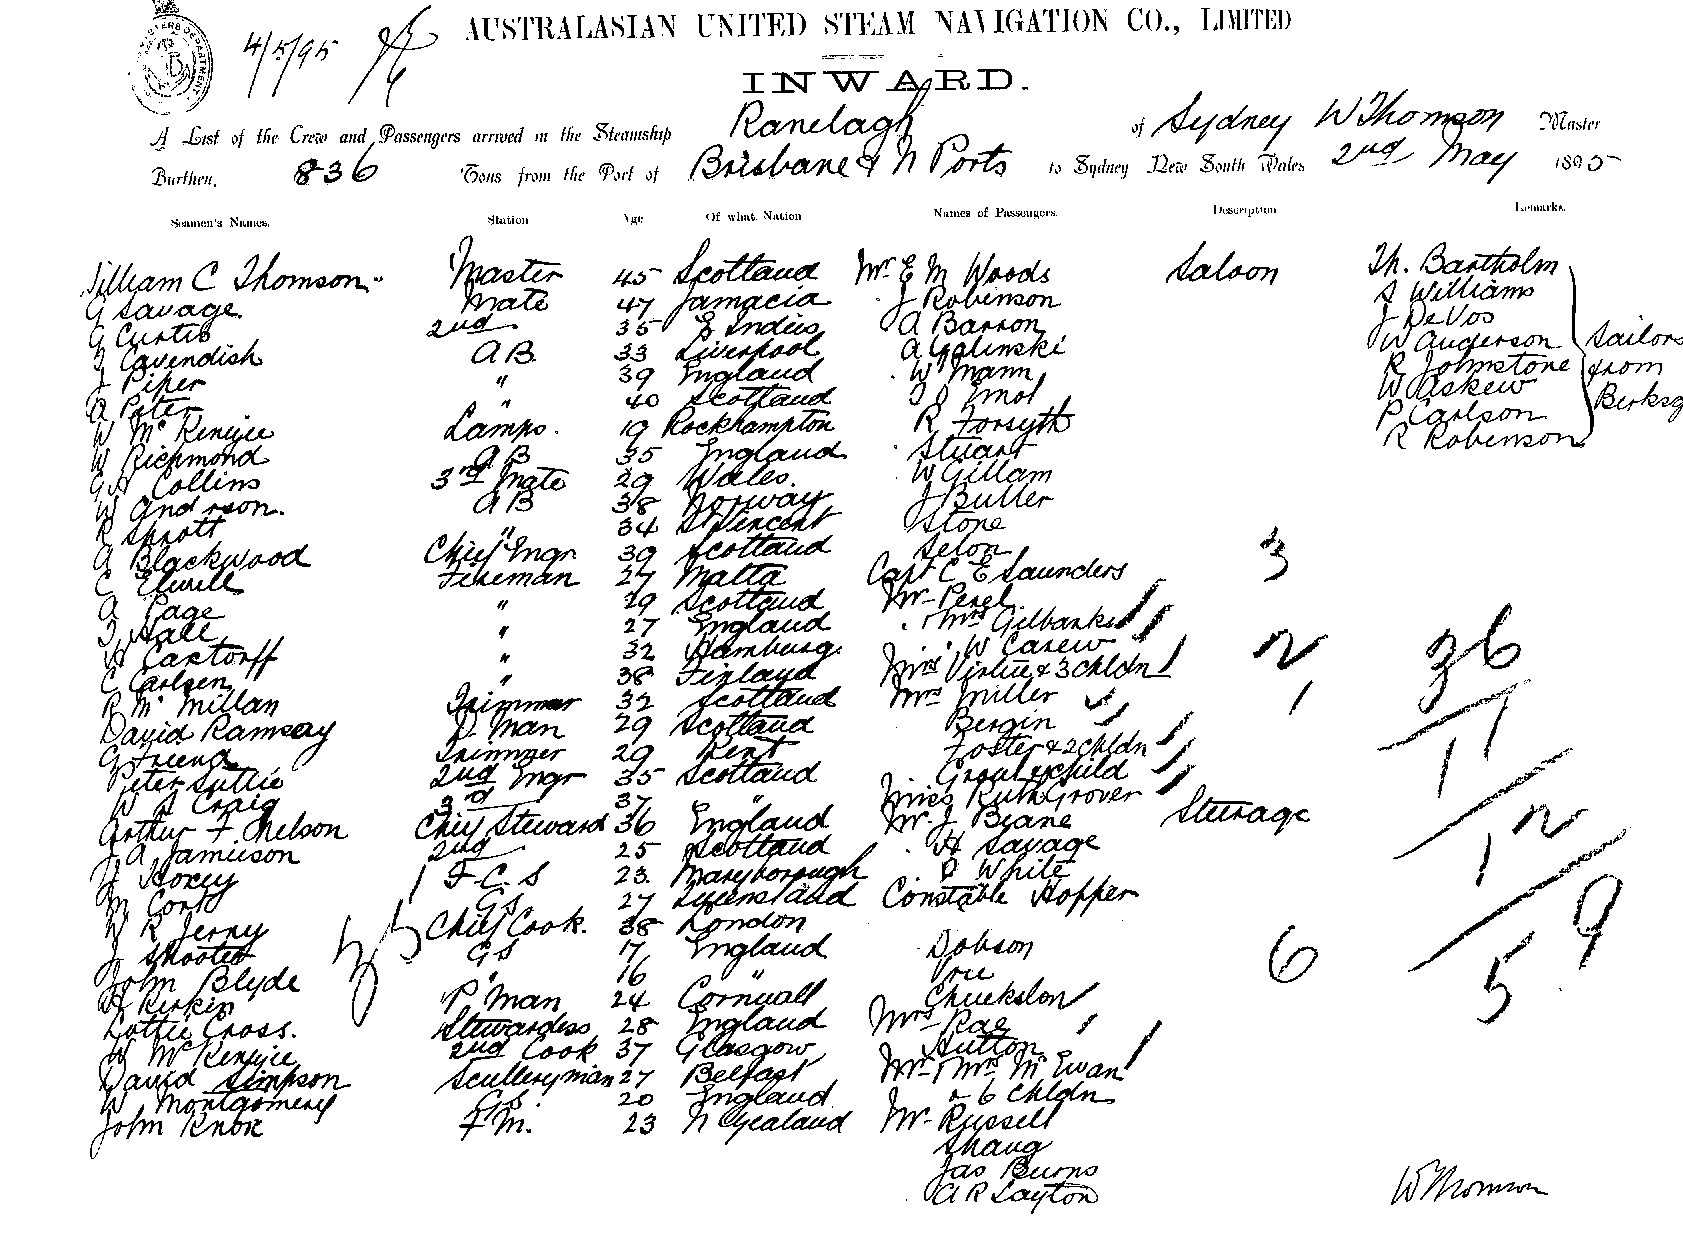 4/5/95
AUSTRALASIAN UNITED STEAM NAVIGATION CO., LIMITED
INWARD.
A List of the Crew and Passengers arrived in the Steamship Ranelagh of Sydney W Thomson Master
Burthen, 836 Tons from the Port of Brisbane & N Ports to Sydney New South Wales 2nd May 1895
Seamen's Names. Station Age Of what Nation Names of Passengers. Description Remarks.
William C Thomson Master 45 Scotland Mr E M Woods Saloon Th. Bartholm
G Savage Mate 47 Jamacia J Robinson S Williams
G Curtis 2nd 35 E Indies A Barron J DeVos
Cavendish AB 33 Liverpool A Galinski W Anderson Sailors
J Piper " 39 England W Mann R Johnstone from
A Pater " 40 Scotland Emol W Askew Berksg
W McKenzie Lamps. 19 Rockhampton R Forsyth P Carlson
W Richmond AB 35 England Stuart R Robinson
G H Collins 3rd Mate 29 Wales. W Gillam
W Anderson. AB 38 Norway J Butler
R Sprott " 34 St Vincent Stone
A Blackwood Chief Engr 39 Scotland Selon 3
C Elwill Fireman 27 Malta Capt C E Saunders
A Page " 29 Scotland Mr Perel
Hall " 27 England Mrs Gilbanks
H Cartorff " 32 Hamburg W Carew 2 36
C Carlsen " 38 Finland Mrs Virtue & 3 chldn
R McMillan Trimmer 32 Scotland Mrs Miller 1
David Ramsay D. Man 29 Scotland Bergin 11
G Friend Trimmer 29 Kent Foster & 2 chldn 1
Peter Suttie 2nd Engr 35 Scotland Grant & child
W S Craig 3rd 37 " Miss Ruth Grover
Arthur F Nelson Chief Steward 36 England Mr J Beane Steerage 12
J A Jamieson 2nd 25 Scotland H Savage 1
J Horey F.C.S 23. Maryborough D White
M Cort GS 27 Queensland Constable Hopper 9
W R Jerny Chief Cook. 38 London
J Shooter GS 17 England Dobson 6 5
John Blyde " 16 " Voce
H Kirkin P Man 24 Cornwall
Lottie Cross. Stewardess 28 England Mrs Rae
W McKenzie 2nd Cook 37 Glasgow Hutton
David Simpson Sculleryman 27 Belfast Mr & Mrs McEwan
W Montgomery GS. 20 England & 6 Chldn
John Knox F M. 23 N Zealand Mr Russell
Shang
Jas Burns
A R Layton W Thomson